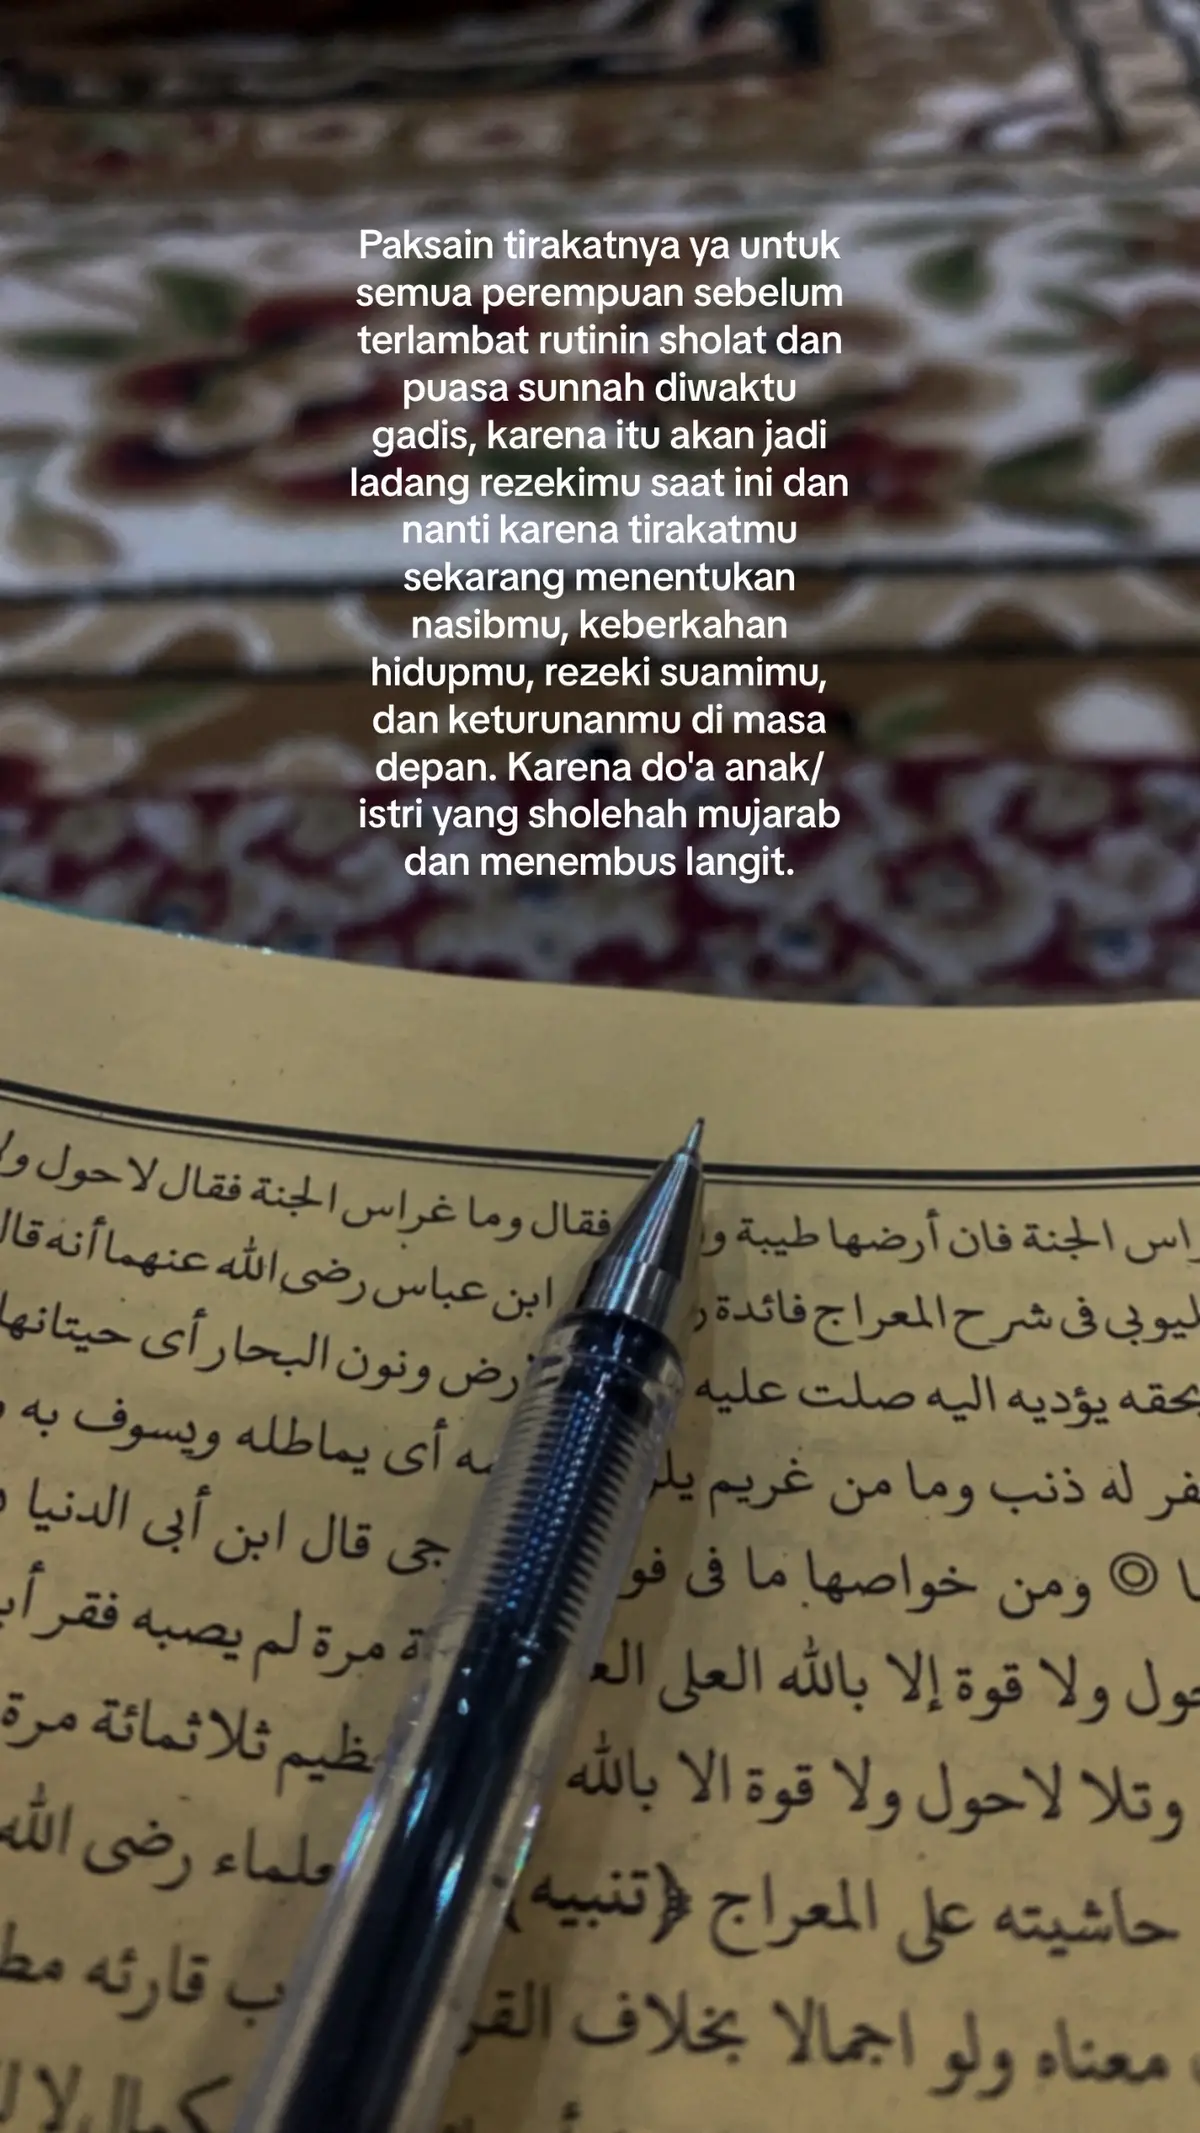 Paksain tirakatnya ya untuk
semua perempuan sebelum
terlambat rutinin sholat dan
puasa sunnah diwaktu
gadis, karena itu akan jadi
ladang rezekimu saat ini dan
nanti karena tirakatmu
sekarang menentukan
nasibmu, keberkahan
hidupmu, rezeki suamimu,
dan keturunanmu di masa
depan. Karena do'a anak/
istri yang sholehah mujarab
dan menembus langit.
الجنة فان أرضها طيبة فقال وما غراس الجنة فقال لا حول
فى شرح المعراج فائدة ابن عباس رضى الله عنهما أنه قال
يؤديه اليه صلت عليه ونون البحار أى حيتانها
له ذنب وما من غريم أى يماطله ويسوف به
◎ ومن خواصها ما فى قال ابن أبى الدنيا
ولا قوة إلا بالله العلى مرة لم يصبه فقر
وتلا لا حول ولا قوة الا بالله ثلاثمائة مرة
حاشيته على المعراج ﴿تنبيه﴾ رضى الله
معناه ولو اجمالا بخلاف قارئه